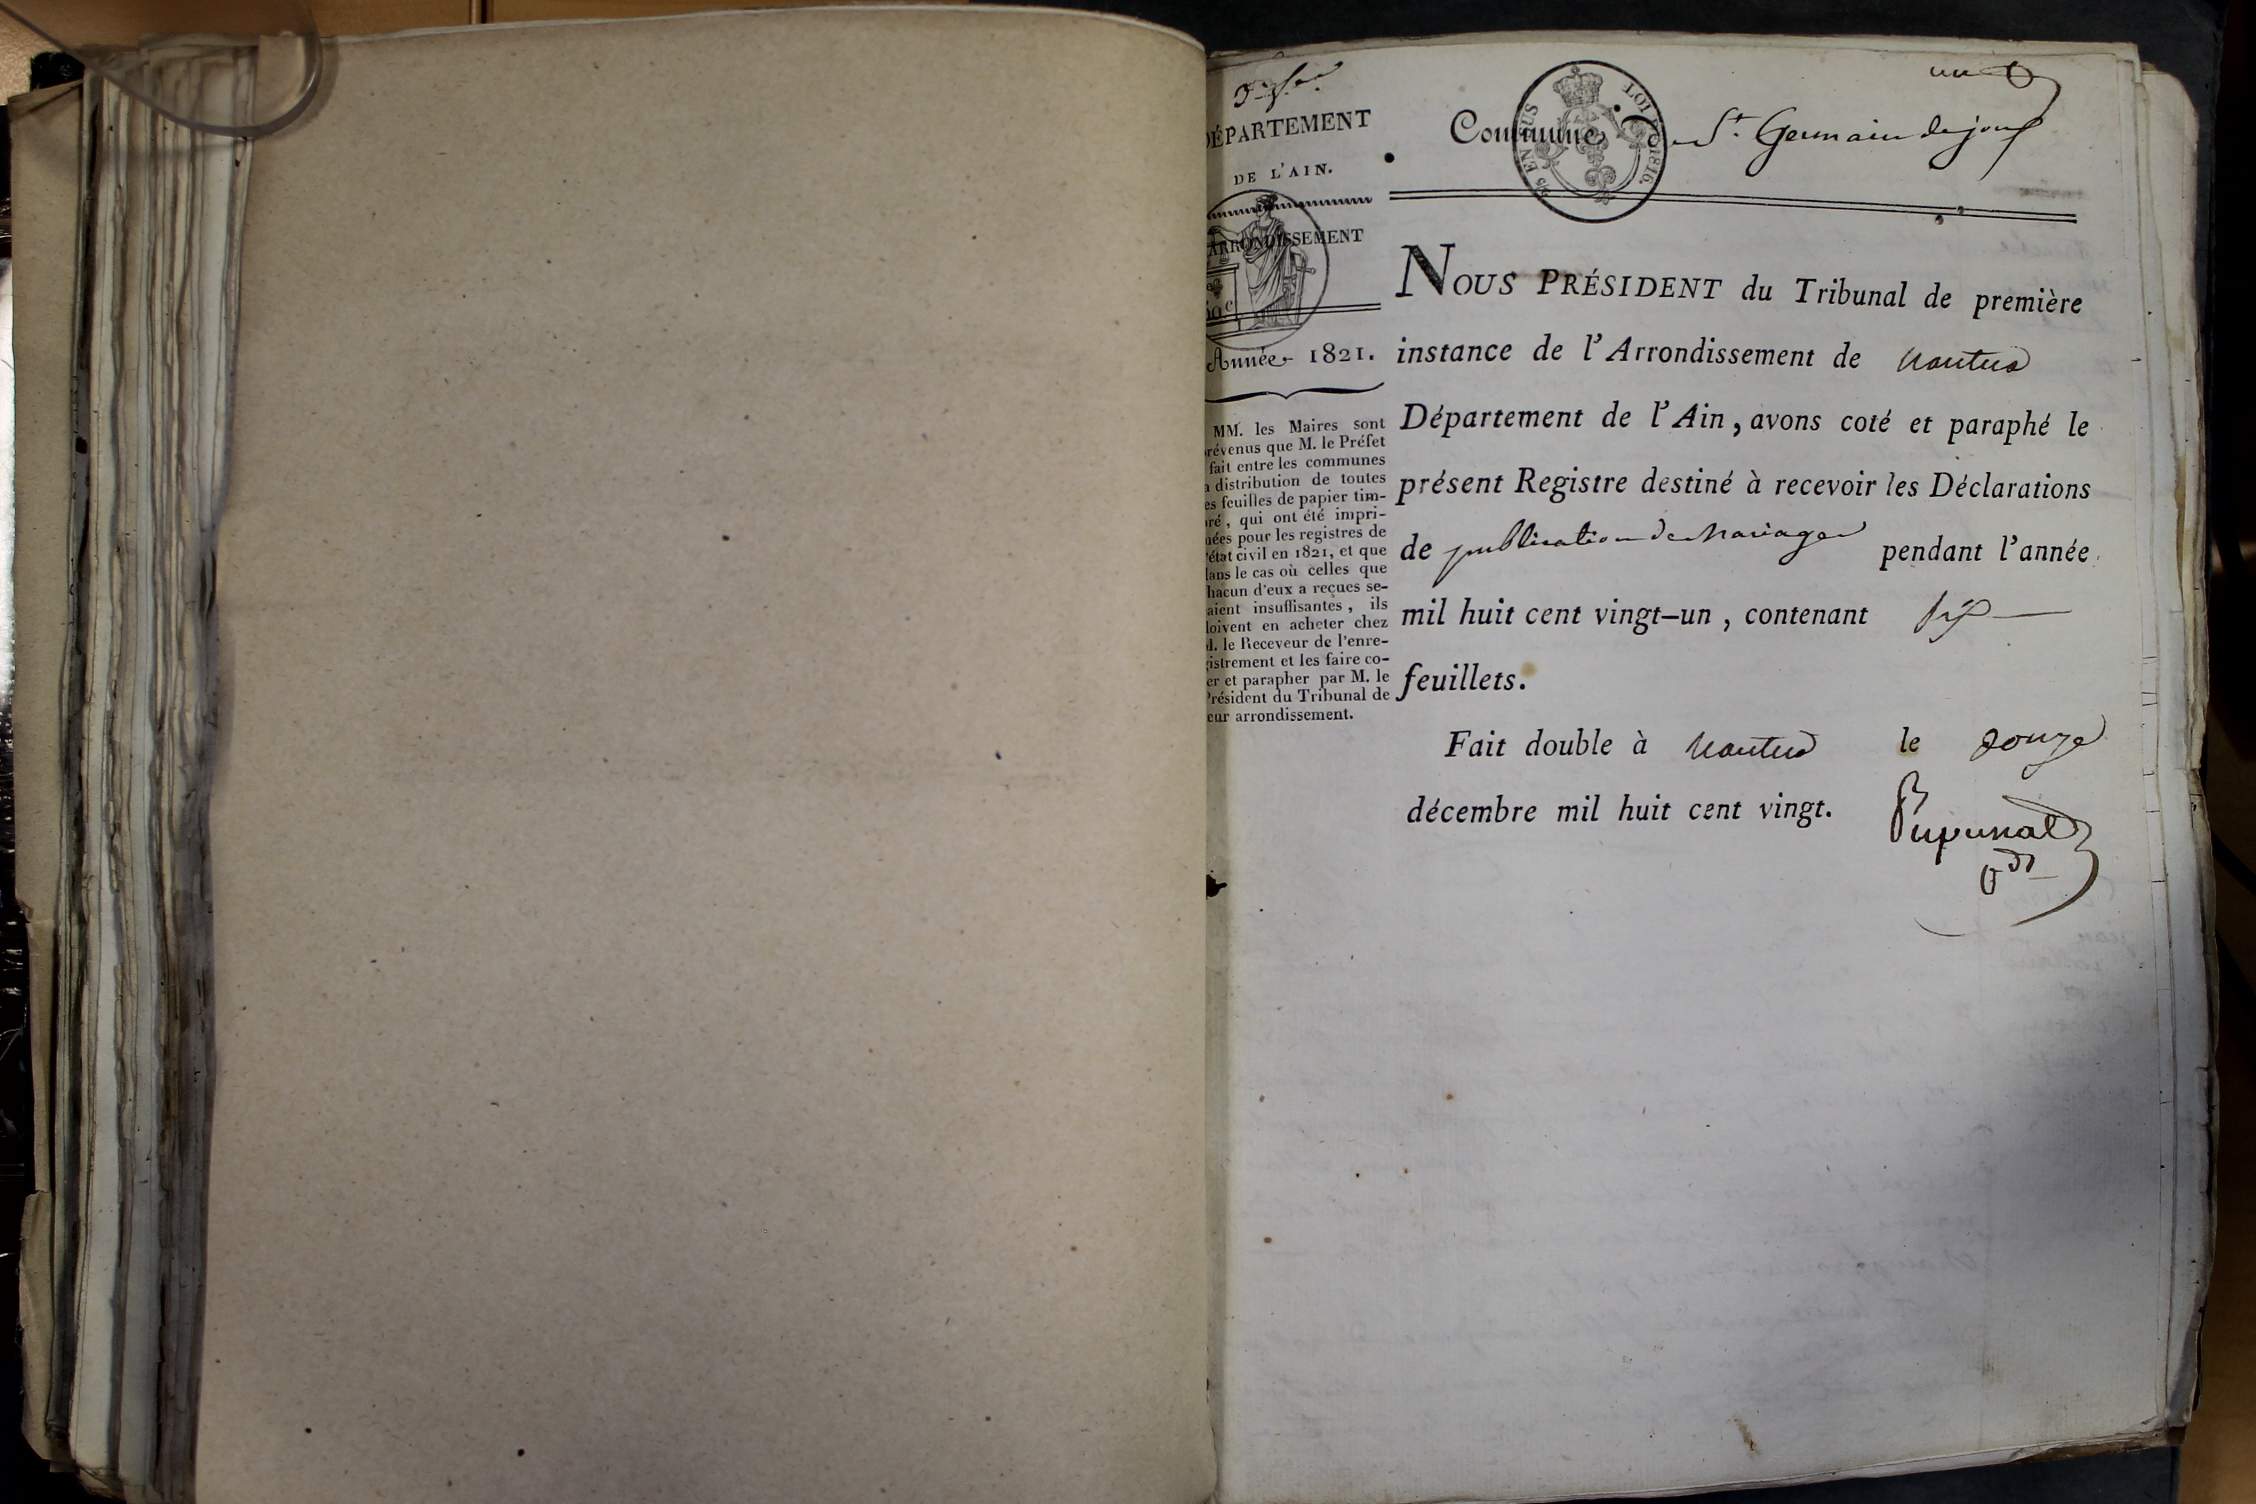 un
DÉPARTEMENT
DE L'AIN.
ARRONDISSEMENT
Année 1821.
MM. les Maires sont
révenus que M. le Préfet
fait entre les communes
a distribution de toutes
es feuilles de papier tim-
ré, qui ont été impri-
ées pour les registres de
'état civil en 1821, et que
ans le cas où celles que
hacun d'eux a reçues se-
aient insuffisantes, ils
oivent en acheter chez
. le Receveur de l'enre-
istrement et les faire co-
er et parapher par M. le
résident du Tribunal de
eur arrondissement.
Commune de St. Germain de joux
EN SUS
LOI DE 1816.
NOUS PRÉSIDENT du Tribunal de première
instance de l'Arrondissement de Nantua
Département de l'Ain, avons coté et paraphé le
présent Registre destiné à recevoir les Déclarations
de publication de Mariage pendant l'année
mil huit cent vingt-un, contenant six
feuillets.
Fait double à Nantua le douze
décembre mil huit cent vingt.
Pupunat